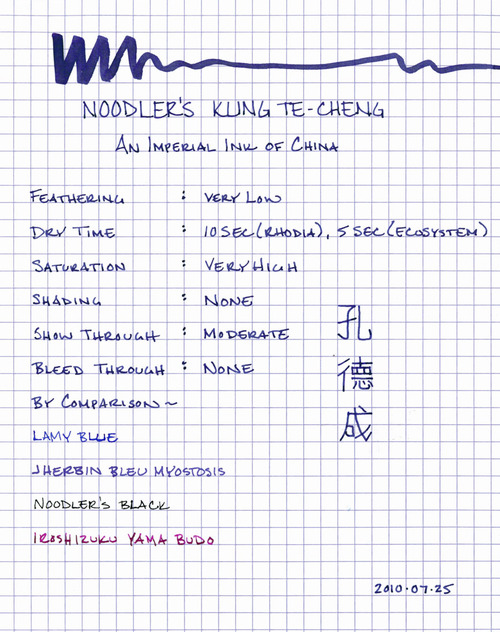 NOODLER'S KUNG TE-CHENG
AN IMPERIAL INK OF CHINA
FEATHERING : VERY LOW
DRY TIME : 10 SEC (RHODIA), 5 SEC (ECOSYSTEM)
SATURATION : VERY HIGH
SHADING : NONE
SHOW THROUGH : MODERATE
BLEED THROUGH : NONE
BY COMPARISON~
LAMY BLUE
JHERBIN BLEU MYOSTOSIS
NOODLER'S BLACK
IROSHIZUKU YAMA BUDO
孔
德
成
2010.07.25